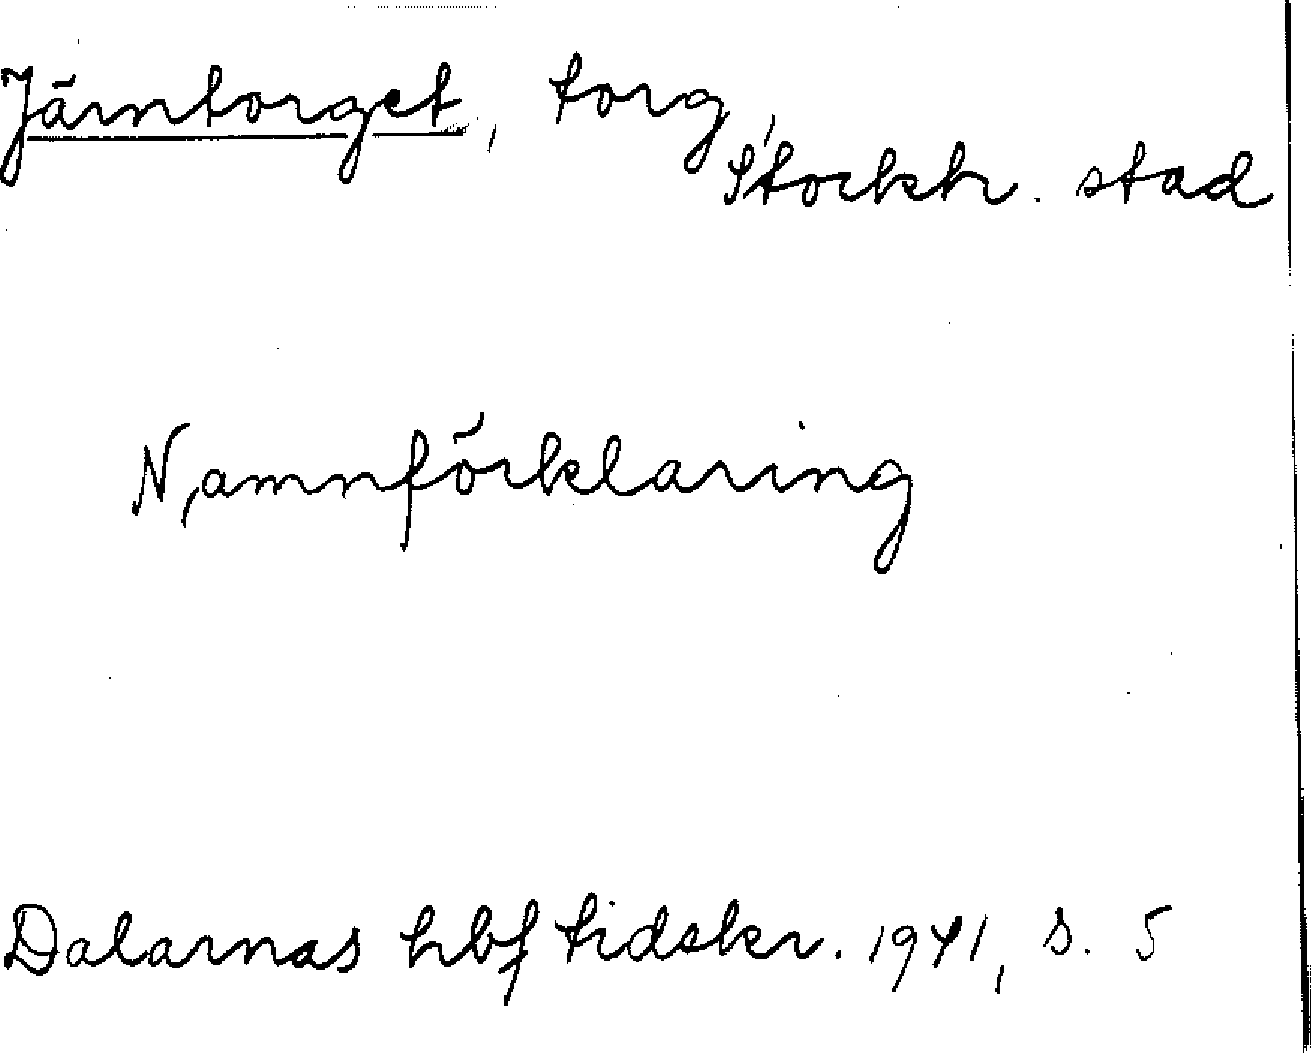 Järntorget, torg,
Stockh. stad
Namnförklaring
Dalarnas hbf tidskr. 1941, s. 5